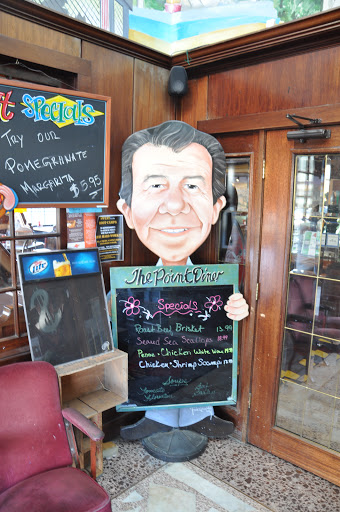 Specials
Try our
Pomegranate
Margarita $5.95
Lite
The Point Diner
Specials
Roast Beef Brisket 13.99
Seared Sea Scallops
Penne • Chicken White Wine
Chicken • Shrimp Scampi
Soups